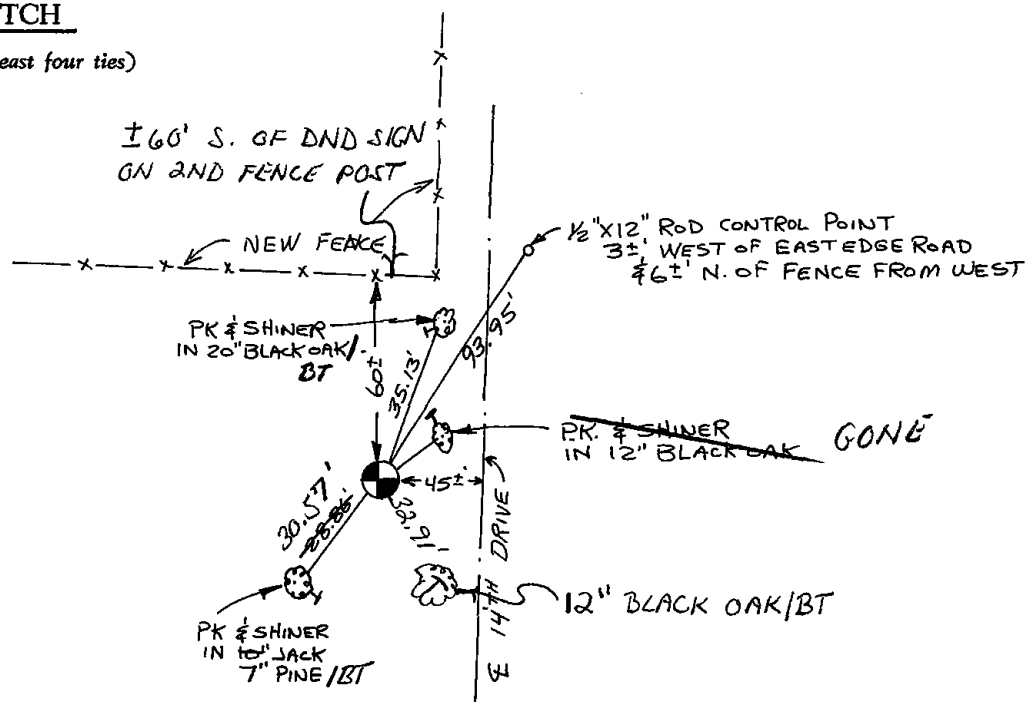 TCH
east four ties)
±60' S. OF DND SIGN
ON 2ND FENCE POST
NEW FENCE
1/2"X12" ROD CONTROL POINT
3±' WEST OF EAST EDGE ROAD
& 6±' N. OF FENCE FROM WEST
PK & SHINER
IN 20" BLACK OAK/
BT
60±'
35.13'
93.95'
P.K. & SHINER
IN 12" BLACK OAK
GONE
45±'
30.57'
28.86'
32.91'
℄ 14TH DRIVE
12" BLACK OAK/BT
PK & SHINER
IN 10" JACK
7" PINE/BT